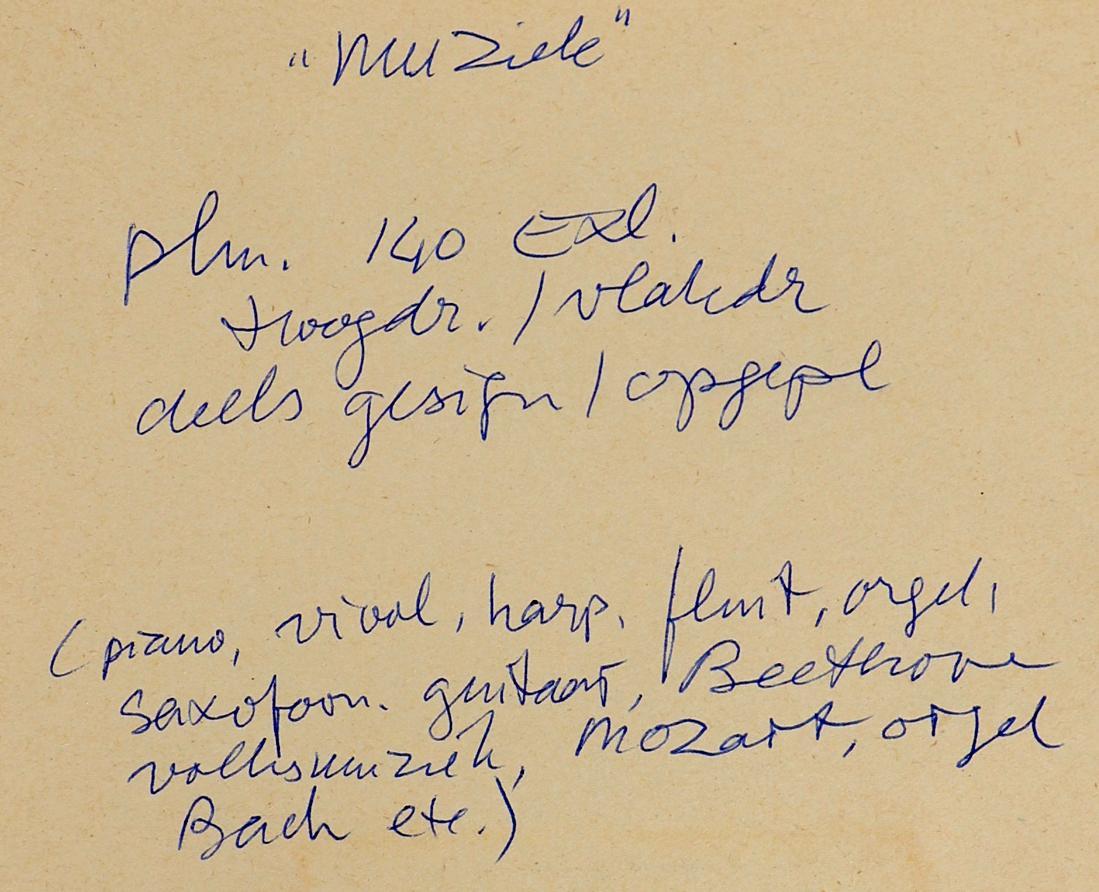 "muziek"
plm. 140 Exl.
Hoogdr. / vlakdr
deels gesign / opgepl
(piano, viool, harp. fluit, orgel,
saxofoon. guitaar, Beethoven
volksmuziek, Mozart, orgel
Bach etc.)